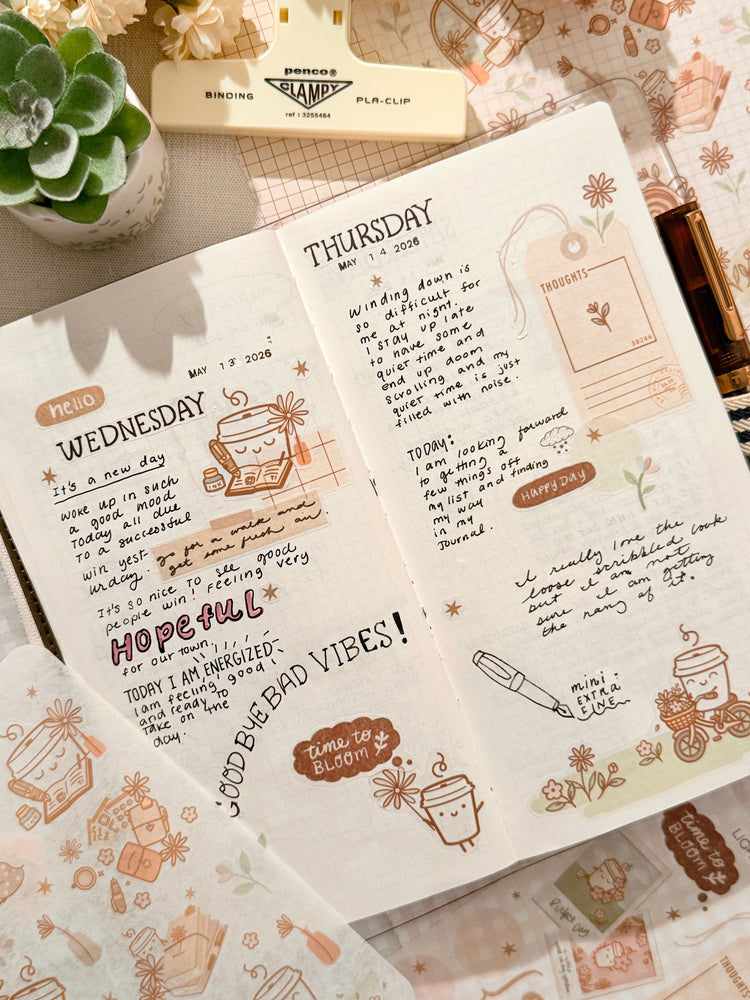 penco®
BINDING
CLAMPY
PLA-CLIP
ref : 3255464
MAY 13 2026
hello
WEDNESDAY
It's a new day
woke up in such
a good mood
Today all due
To a successful
win yest-
urday.
go for a walk and
get some fresh air.
It's so nice to see good
people win! Feeling very
HOPEFUL
for our town.
TODAY I AM ENERGIZED
I am feeling good!
and ready to
take on the
day.
GOODBYE BAD VIBES!
time to
BLOOM
INK
THURSDAY
MAY 14 2026
Winding down is
so difficult for
me at night.
I stay up late
to have some
quiet time and
end up doom
scrolling and my
quiet time is just
filled with noise.
THOUGHTS
38246
TODAY:
I am looking forward
to getting a
few things off
my list and finding
my way
in my
journal.
HAPPY DAY
I really love the
loose scribbled look
but I am not
sure I am getting
the hang of it.
mini
EXTRA
FINE
time to
BLOOM
Perfect Day
THOUGHTS